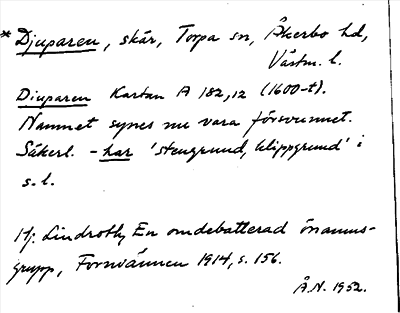 *Djuparen, skär, Torpa sn, Åkerbo hd,
Västm. l.
Diuparen Kartan A 182,12 (1600-t).
Namnet synes nu vara försvunnet.
Säkerl. -har 'stengrund, klippgrund' i
s.l.
Hj. Lindroth, En omdebatterad önamns-
grupp, Fornvännen 1914, s. 156.
Å.N. 1952.